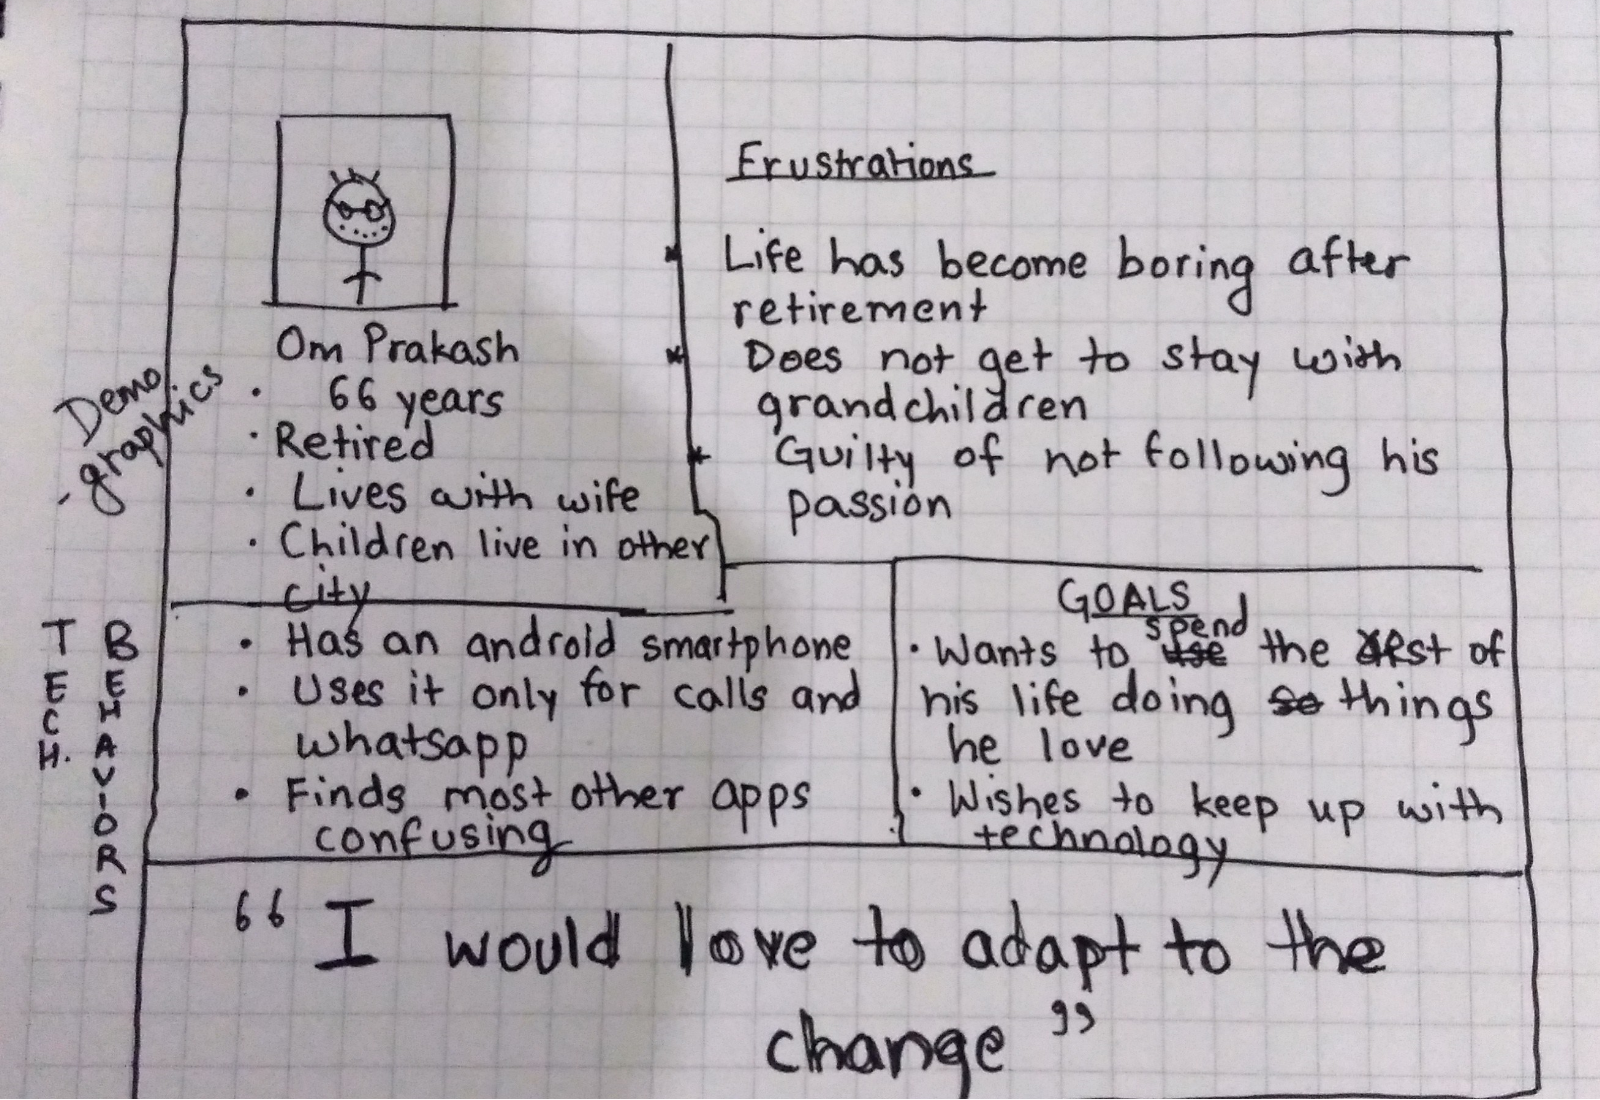 Demo
-graphics
Om Prakash
• 66 years
• Retired
• Lives with wife
• Children live in other
city
Frustrations
* Life has become boring after
retirement
* Does not get to stay with
grandchildren
* Guilty of not following his
passion
TECH. BEHAVIORS
• Has an android smartphone
• Uses it only for calls and
whatsapp
• Finds most other apps
confusing
GOALS
• Wants to spend the rest of
his life doing things
he love
• Wishes to keep up with
technology
“ I would love to adapt to the
change ”